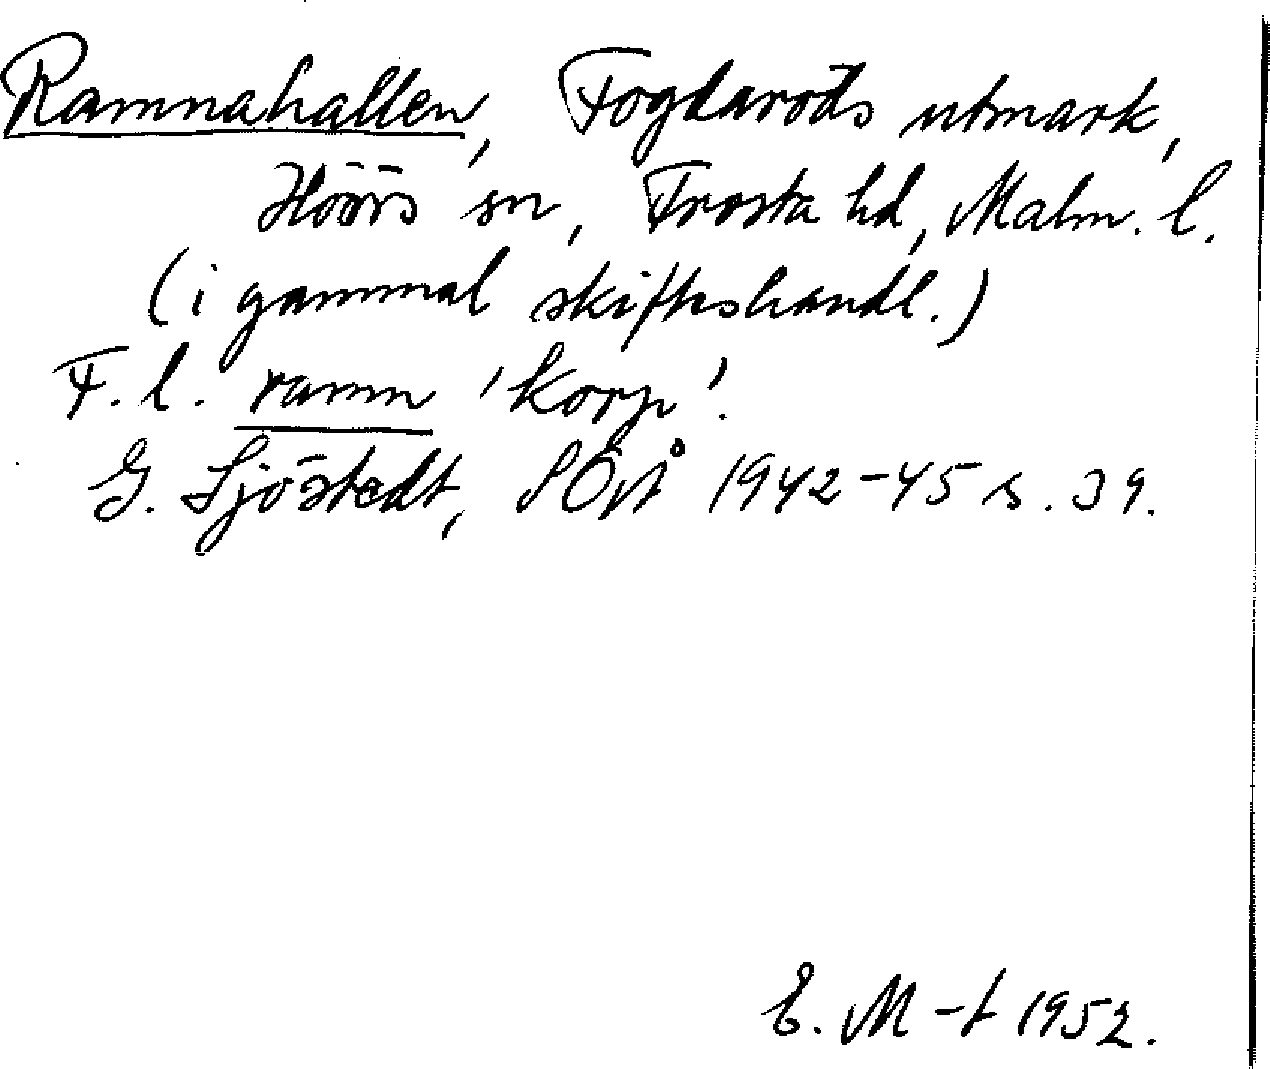 Ramnahallen, Fogdaröds utmark,
Höörs sn, Frosta hd, Malm. l.
(i gammal skifteshandl.)
F. l. ramn 'korp'.
G. Sjöstedt, SOÅ 1942-45 s. 39.
E. M-t 1952.